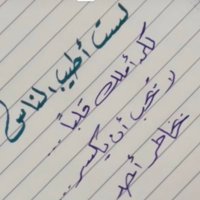 لست أطيب الناس
لكن أملك قلبا...
لا يحب أن يكسر...
خاطر أحد